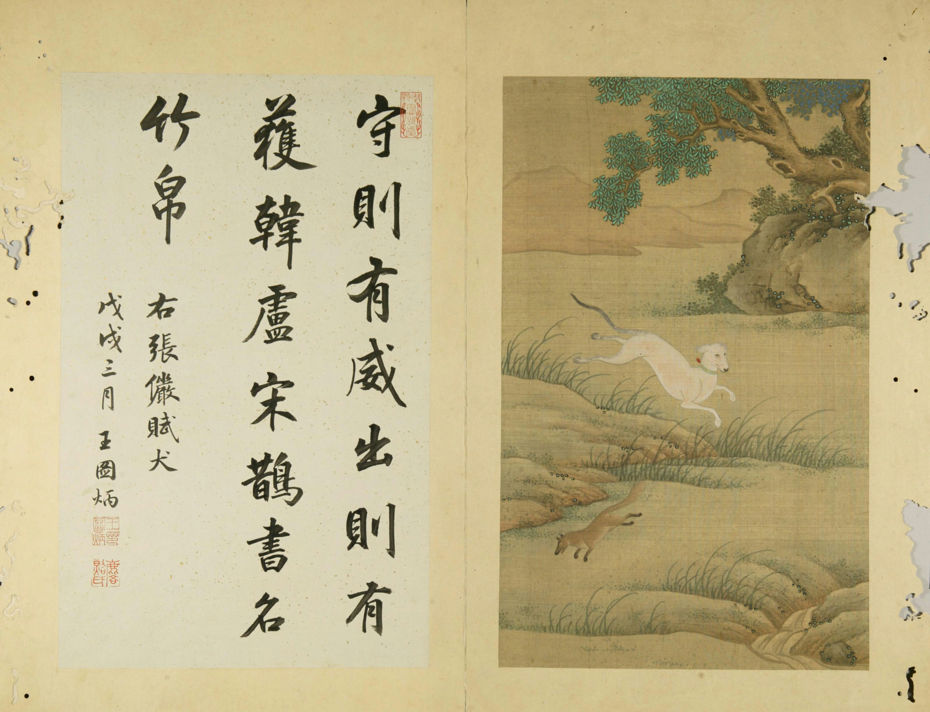 守則有威出則有
獲韓盧宋鵲書名
竹帛
右張儼賦犬
戊戌三月 王圖炳